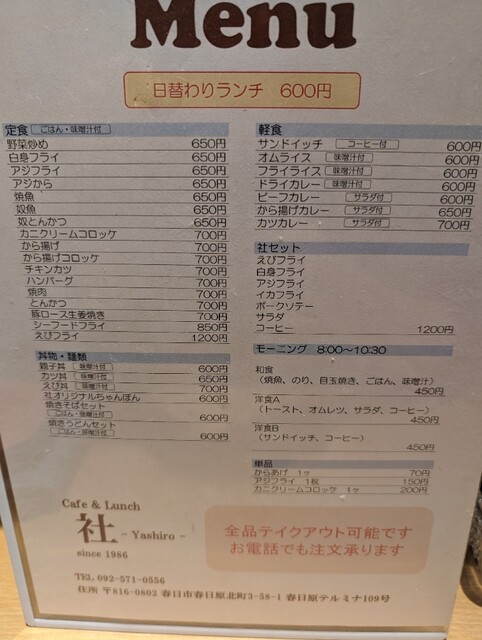 Menu
日替わりランチ 600円
定食 ごはん・味噌汁付
野菜炒め 650円
白身フライ 650円
アジフライ 650円
アジから 650円
焼魚 650円
奴魚 650円
奴とんかつ 650円
カニクリームコロッケ 700円
から揚げ 700円
から揚げコロッケ 700円
チキンカツ 700円
ハンバーグ 700円
焼肉 700円
とんかつ 700円
豚ロース生姜焼き 700円
シーフードフライ 850円
えびフライ 1200円
丼物・麺類
親子丼 味噌汁付 600円
カツ丼 味噌汁付 650円
えび丼 味噌汁付 700円
社オリジナルちゃんぽん 600円
焼きそばセット
ごはん・味噌汁付 600円
焼きうどんセット
ごはん・味噌汁付 600円
軽食
サンドイッチ コーヒー付 600円
オムライス 味噌汁付 600円
フライライス 味噌汁付 600円
ドライカレー 味噌汁付 600円
ビーフカレー サラダ付 600円
から揚げカレー サラダ付 650円
カツカレー サラダ付 700円
社セット
えびフライ
白身フライ
アジフライ
イカフライ
ポークソテー
サラダ
コーヒー 1200円
モーニング 8:00〜10:30
和食
(焼魚、のり、目玉焼き、ごはん、味噌汁)
450円
洋食A
(トースト、オムレツ、サラダ、コーヒー)
450円
洋食B
(サンドイッチ、コーヒー)
450円
単品
からあげ 1ヶ 70円
アジフライ 1枚 150円
カニクリームコロッケ 1ヶ 200円
Cafe & Lunch
社 - Yashiro -
since 1986
全品テイクアウト可能です
お電話でも注文承ります
TEL 092-571-0556
住所 〒816-0802 春日市春日原北町3-58-1 春日原テルミナ109号